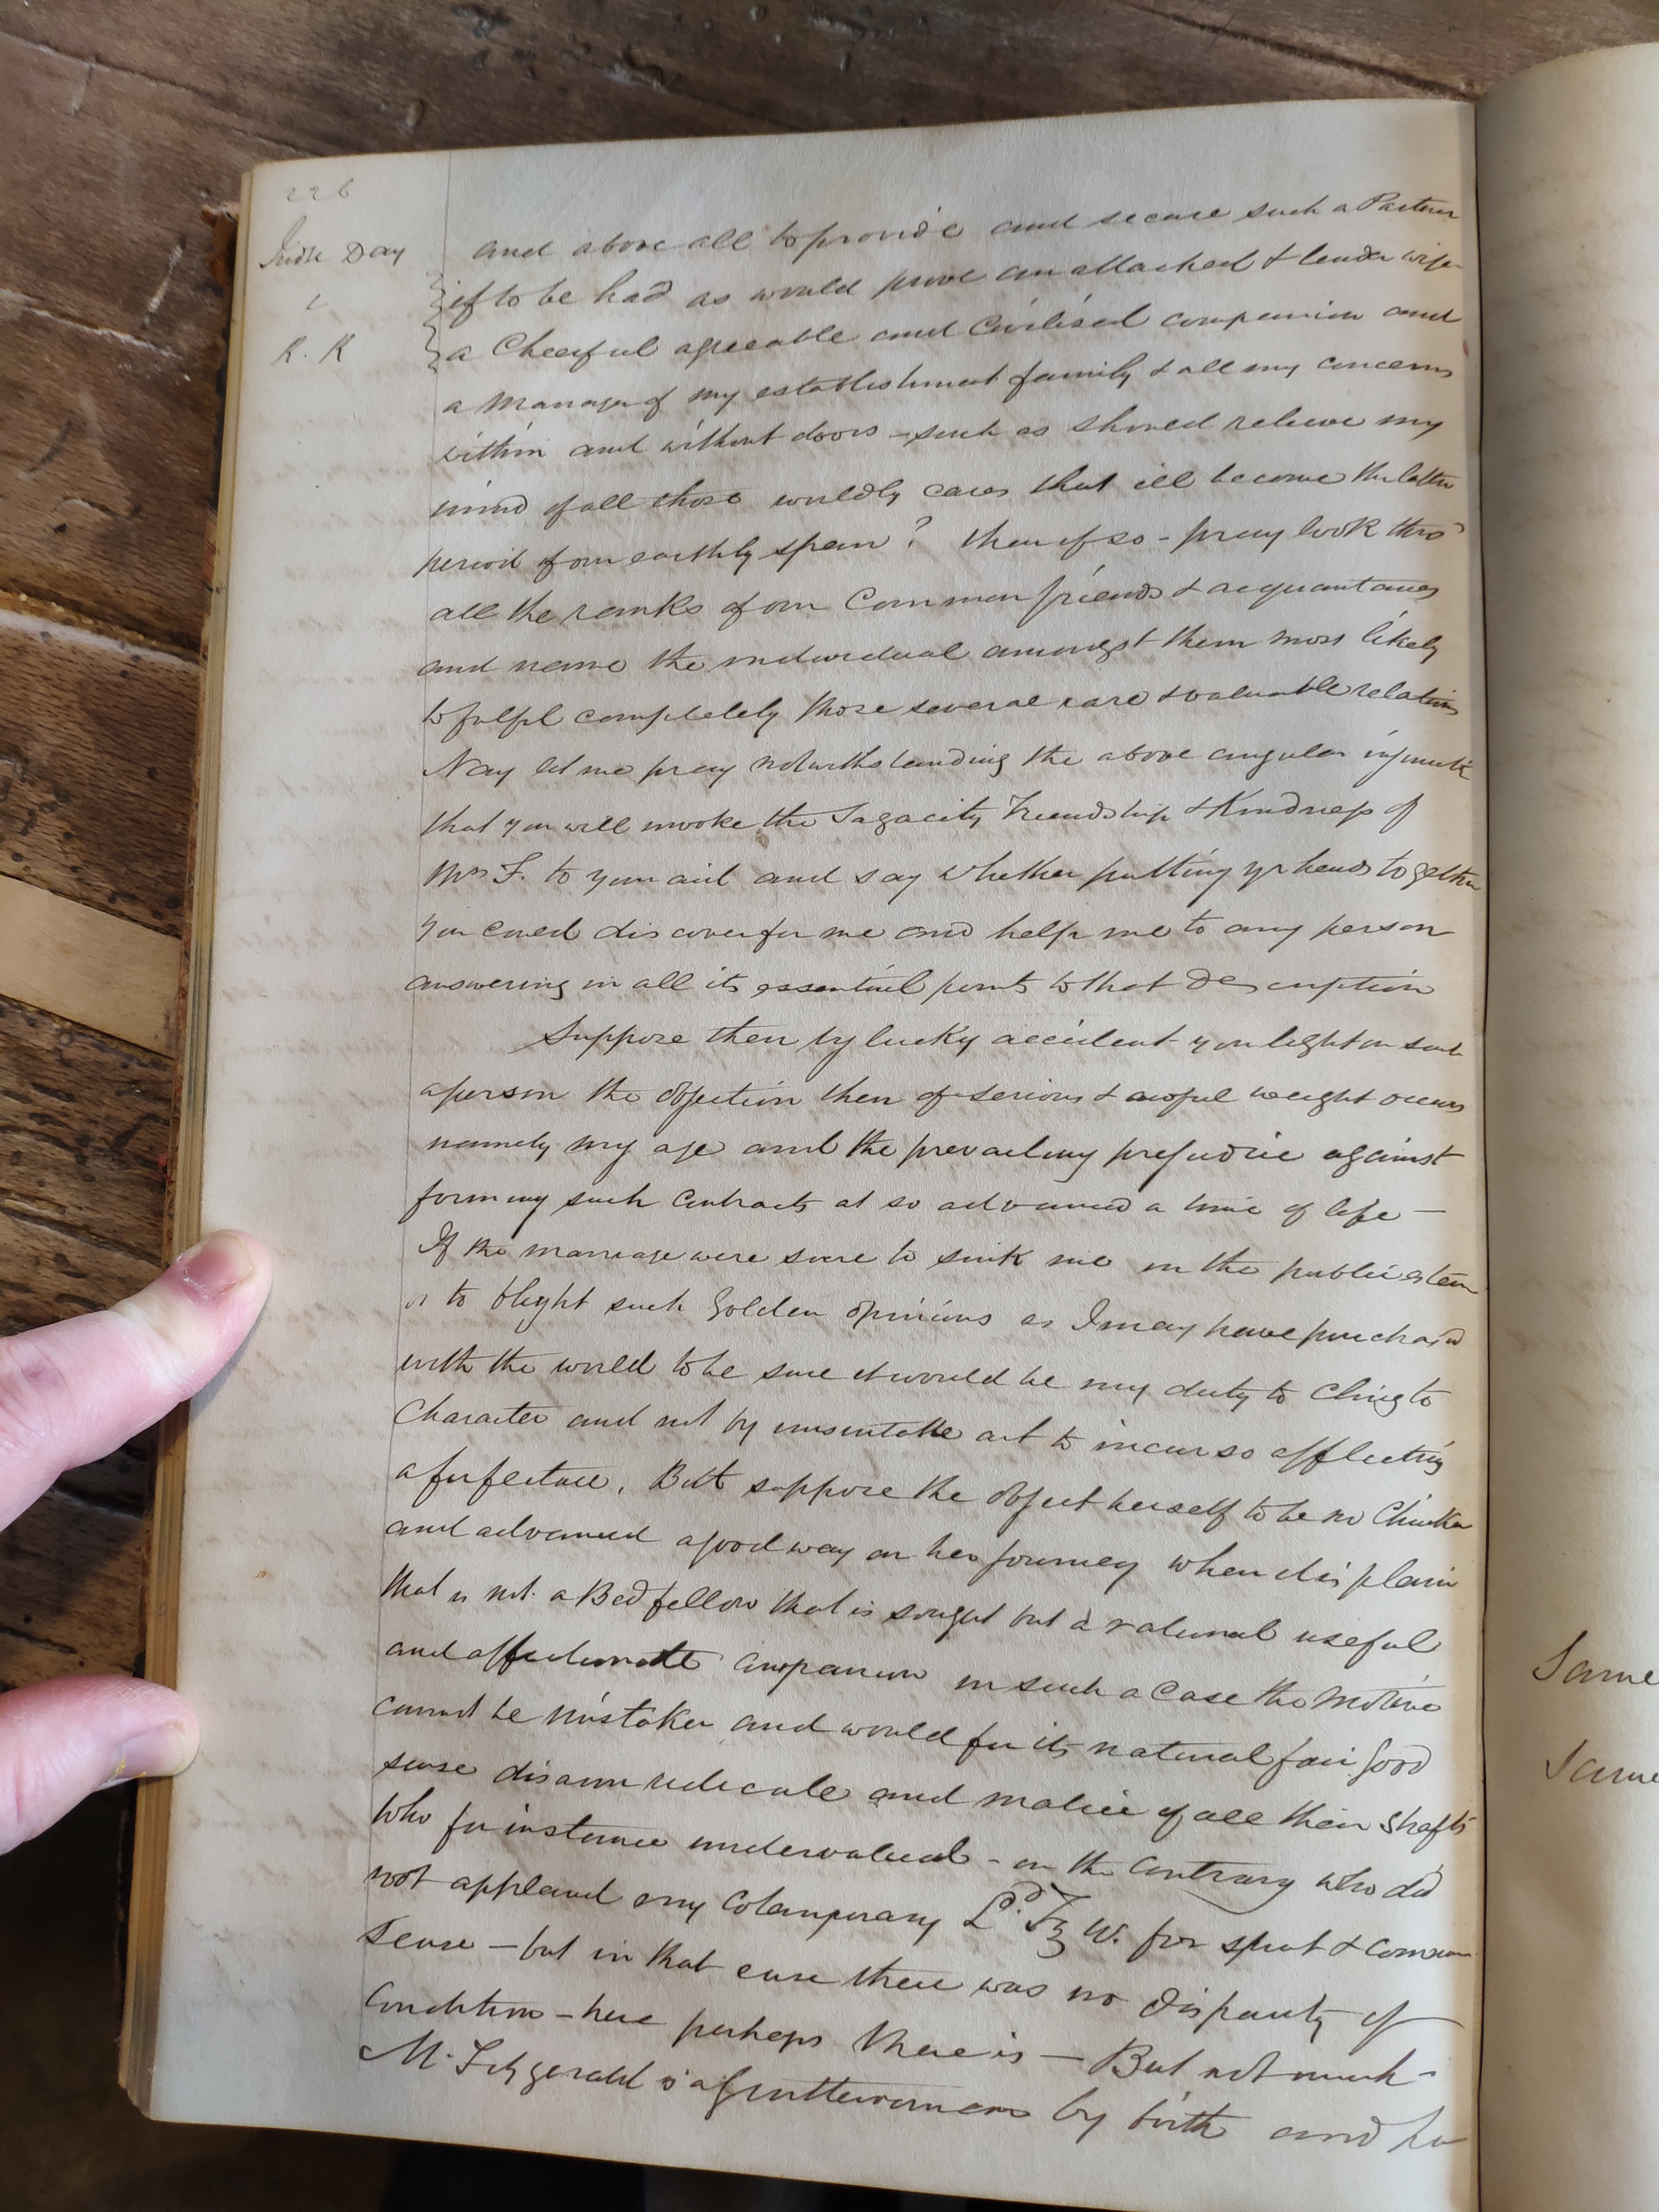 226
Judge Day
R. K
and above all to provide and secure such a Partner
if to be had as would prove an attached & tender wife
a Cheerful agreeable and Civilised companion and
a Manager of my establishment family & all my concerns
within and without doors – such as should relieve my
mind of all those worldly cares that ill become the latter
period of our earthly span? then if so – pray look thro'
all the ranks of our Common friends & acquantances
and name the individual amongst them most likely
to fulfil completely those several rare & valuable relations
Nay let me pray notwithstanding the above angular
that you will invoke the Sagacity Friendship & Kindness of
Mrs F. to your aid and say whether putting yr heads together
you coued discover for me and help me to any person
answering in all its essential points to that Description
Suppose then by lucky accident you light on such
a person the objection then of serious & awful weight occurs
namely my age and the prevailing prejudice against
forming such Contracts at so advanced a time of life –
If the marriage were sure to sink me in the public esteem
or to blight such Golden opinions as I may have purchasd
with the world to be sure it would be my duty to Cling to
Character and not by unsuitable act to incur so afflicting
a forfeiture. But suppose the object herself to be no Chicken
and advanced a good way on her journey when it is plain
that is not a Bedfellow that is sought but a rational useful
and affectionate companion in such a Case the Motive
cannot be mistaken and would for its natural fair good
sense disarm redicule and malice of all their Shafts
Who for instance undervalued – on the Contrary who did
not applaud my Cotemporary Ld. Fz W. for spirit & common
Sense – but in that case there was no Disparity of
Condition – here perhaps there is – But not much –
M. Fitzgerald is a Gentlewoman by birth and
Same
Same